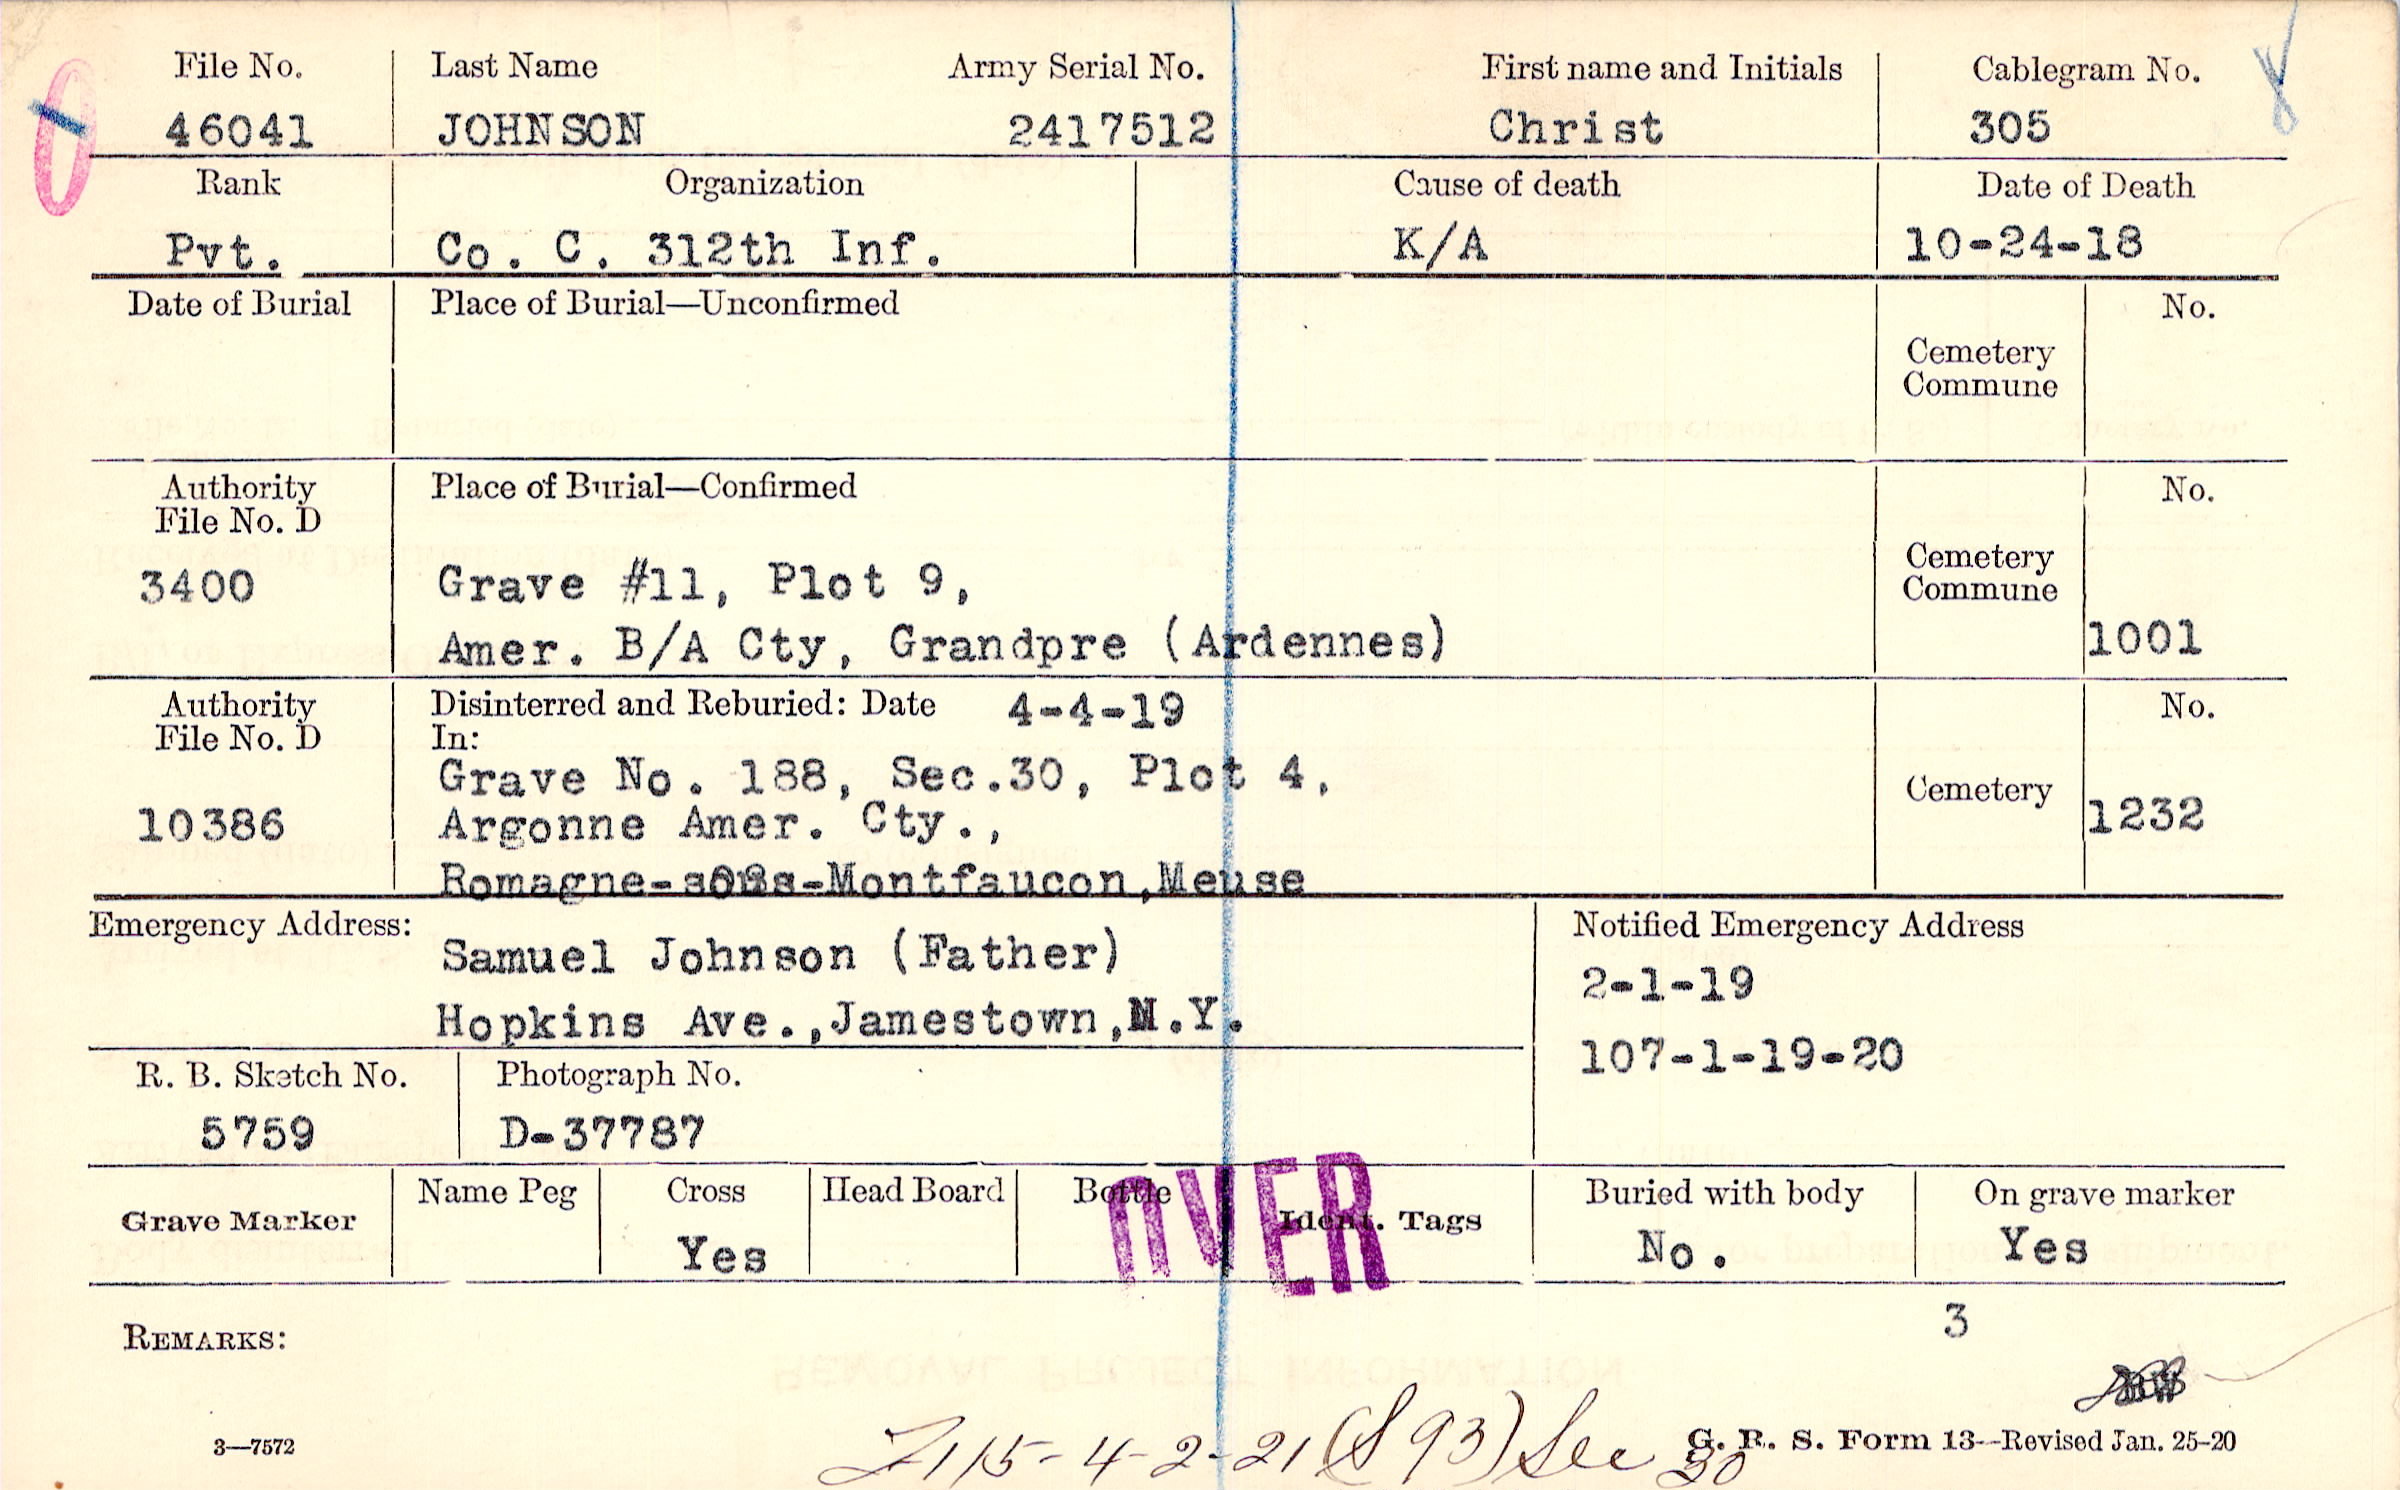 File No. Last Name Army Serial No. First name and Initials Cablegram No.
46041 JOHNSON 2417512 Christ 305
Rank Organization Cause of death Date of Death
Pvt. Co. C. 312th Inf. K/A 10-24-18
Date of Burial Place of Burial—Unconfirmed No.
Cemetery
Commune
Authority Place of Burial—Confirmed No.
File No. D
Cemetery
3400 Grave #11, Plot 9, Commune
Amer. B/A Cty, Grandpre (Ardennes) 1001
Authority Disinterred and Reburied: Date 4-4-19 No.
File No. D In:
Grave No. 188, Sec.30, Plot 4, Cemetery
10386 Argonne Amer. Cty., 1232
Romagne-sous-Montfaucon,Meuse
Emergency Address: Notified Emergency Address
Samuel Johnson (Father) 2-1-19
Hopkins Ave.,Jamestown,N.Y. 107-1-19-20
R. B. Sketch No. Photograph No.
5759 D-37787
OVER
Name Peg Cross Head Board Bottle Buried with body On grave marker
Grave Marker Ident. Tags
Yes No. Yes
3
REMARKS:
3—7572 G. R. S. Form 13—Revised Jan. 25-20
115-4-2-21 (S 93) See 30